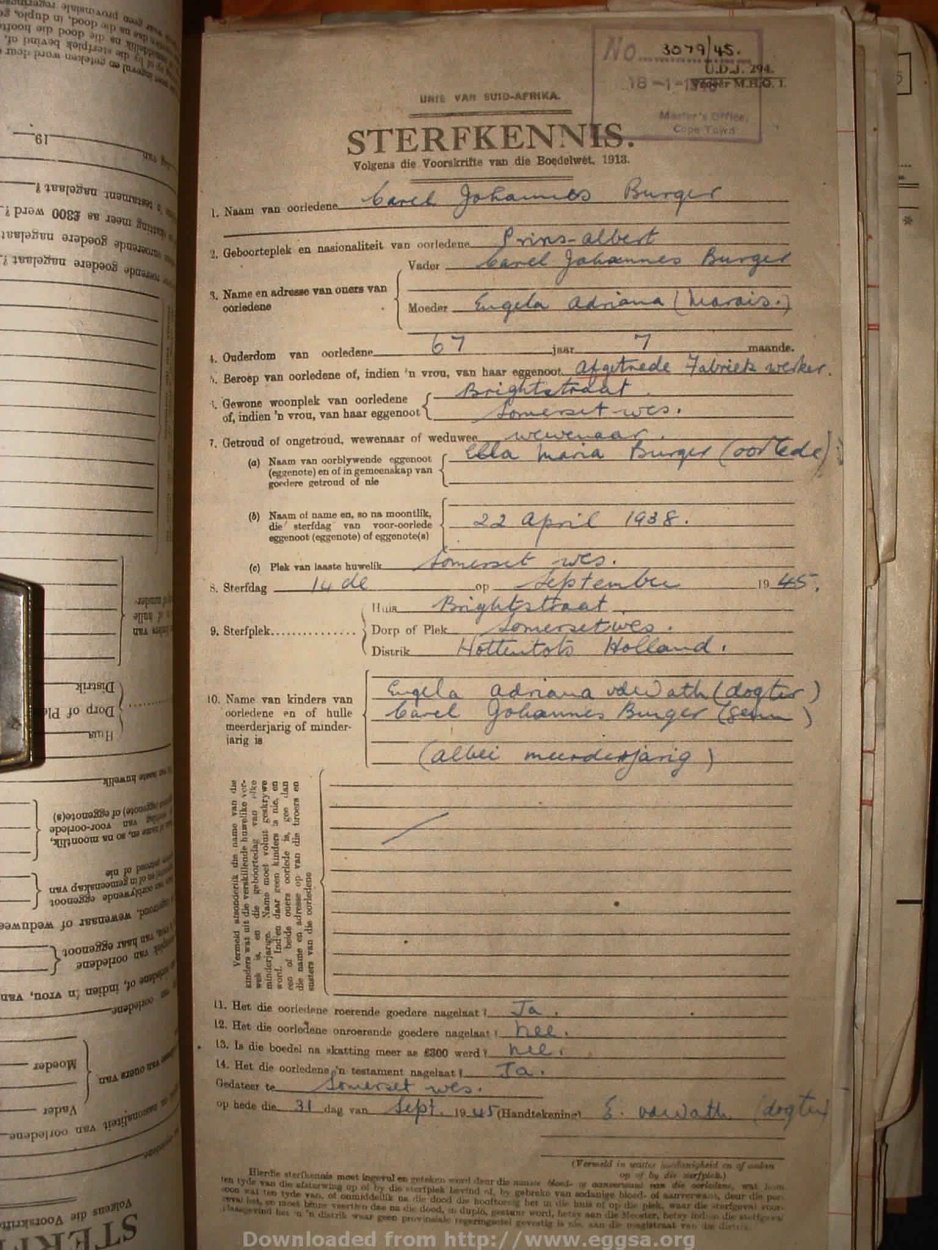 No. 3079/45.
U.D.J. 294.
18 -1-
Master's Office,
Cape Town
UNIE VAN SUID-AFRIKA.
STERFKENNIS.
Volgens die Voorskrifte van die Boedelwet, 1913.
1. Naam van oorledene Carel Johannes Burger
2. Geboorteplek en nasionaliteit van oorledene Prins-albert
3. Name en adresse van ouers van oorledene
Vader Carel Johannes Burger
Moeder Engela Adriana (Marais.)
4. Ouderdom van oorledene 67 jaar 7 maande.
5. Beroep van oorledene of, indien 'n vrou, van haar eggenoot Afgetrede Fabrieks werker.
6. Gewone woonplek van oorledene Brightstraat
of, indien 'n vrou, van haar eggenoot Somerset-wes.
7. Getroud of ongetroud, wewenaar of weduwee wewenaar.
(a) Naam van oorblywende eggenoot (eggenote) en of in gemeenskap van goedere getroud of nie
Maria Burger (oorlede)
(b) Naam of name en, so na moontlik, die sterfdag van voor-oorlede eggenoot (eggenote) of eggenote(s)
22 April 1938.
(c) Plek van laaste huwelik Somerset wes.
8. Sterfdag 14de op September 19 45.
9. Sterfplek
Huis Brightstraat.
Dorp of Plek Somersetwes.
Distrik Hottentots Holland.
10. Name van kinders van oorledene en of hulle meerderjarig of minderjarig is
Engela Adriana vdWath (dogter)
Carel Johannes Burger (seun)
(albei meerderjarig)
Vermeld afsonderlik die name van die
kinders wat uit die verskillende huwelike ver-
wek is, en die geboortedag van elke
minderjarige. Name moet voluit geskrywe
word. Indien daar geen kinders is nie, en
een of beide ouers oorlede is, gee dan
die name en adresse op van die broers en
susters van die oorledene
11. Het die oorledene roerende goedere nagelaat? Ja.
12. Het die oorledene onroerende goedere nagelaat? Nee.
13. Is die boedel na skatting meer as £300 werd? Nee.
14. Het die oorledene 'n testament nagelaat? Ja.
Gedateer te Somerset wes.
op hede die 31 dag van Sept. 1945 (Handtekening) E. vdWath (dogter)
(Vermeld in watter hoedanigheid en of anders
op of by die sterfplek.)
Hierdie sterfkennis moet ingevul en geteken word deur die naaste bloed- of aanverwant van die oorledene, wat ten tyde van die afsterwing op of by die sterfplek bevind
Downloaded from http://www.eggsa.org